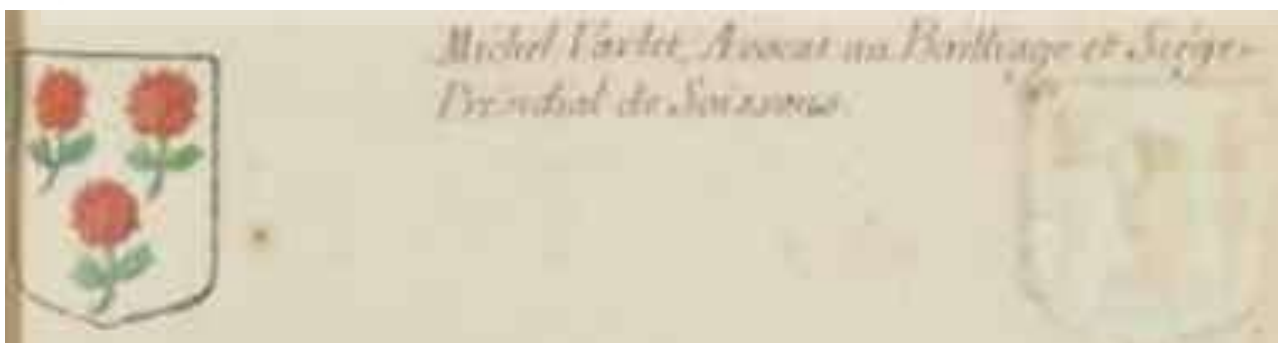 Michel Varlet, Avocat au Bailliage et Siége-
Presidial de Soissons.